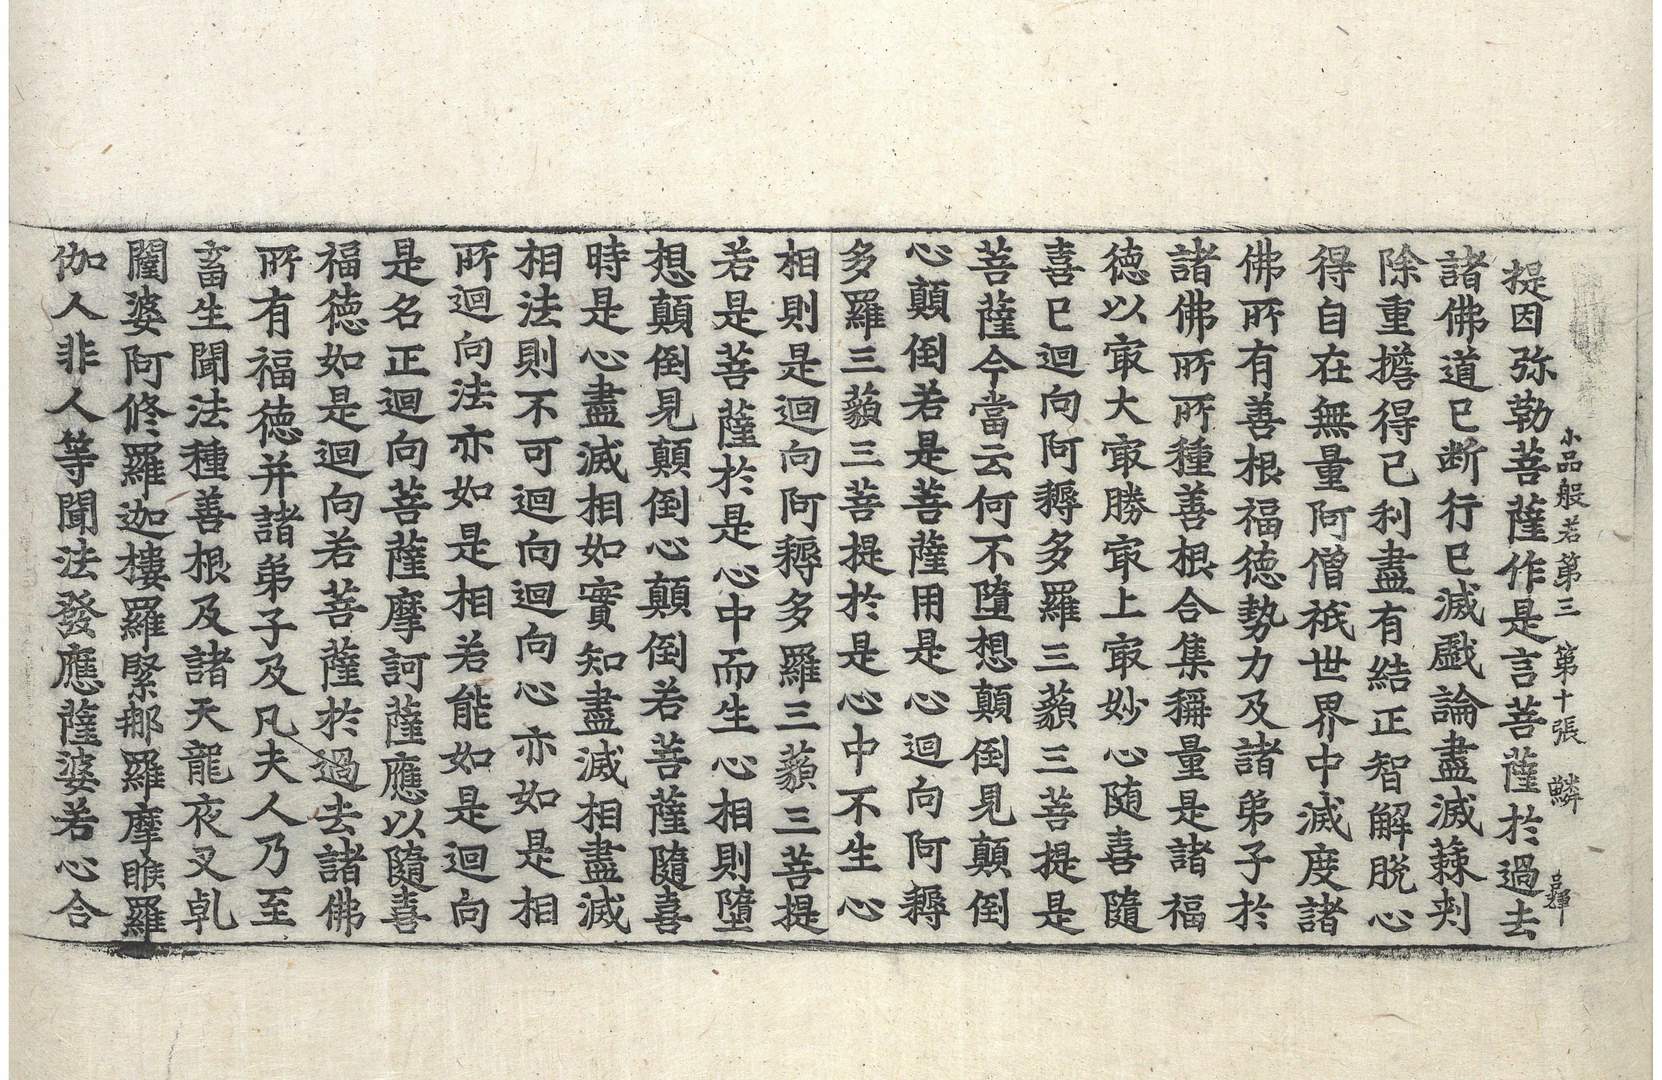 小品般若第三 第十張 鱗 呂輝
提因弥勒菩薩作是言菩薩於過去
諸佛道已断行已滅戱論盡滅蕀刾
除重擔得己利盡有結正智解脫心
得自在無量阿僧祇世界中滅度諸
佛所有善根福德勢力及諸弟子於
諸佛所所種善根合集稱量是諸福
德以㝡大㝡勝㝡上㝡妙心随喜隨
喜已迴向阿耨多羅三藐三菩提是
菩薩今當云何不墮想顛倒見顛倒
心顛倒若是菩薩用是心迴向阿耨
多羅三藐三菩提於是心中不生心
相則是迴向阿耨多羅三藐三菩提
若是菩薩於是心中而生心相則墮
想顛倒見顛倒心顛倒若菩薩隨喜
時是心盡滅相如實知盡滅相盡滅
相法則不可迴向迴向心亦如是相
所迴向法亦如是相若能如是迴向
是名正迴向菩薩摩訶薩應以隨喜
福德如是迴向若菩薩於過去諸佛
所有福德并諸弟子及凡夫人乃至
畜生聞法種善根及諸天龍夜叉乹
闥婆阿修羅迦樓羅緊那羅摩睺羅
伽人非人等聞法發應薩婆若心合